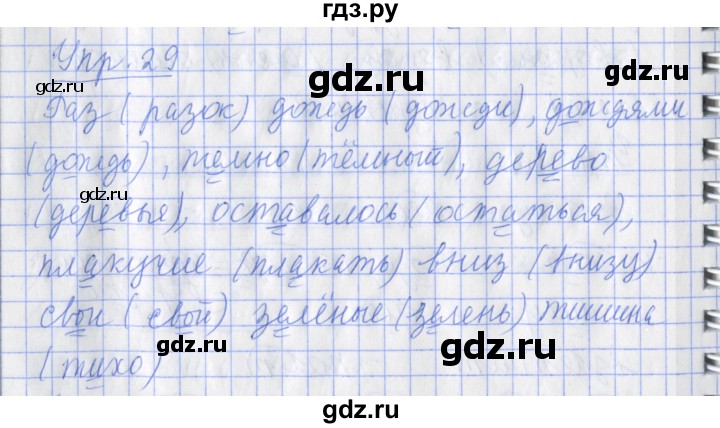 гдз.ру
Упр. 29
gdz.ru
gdz.ru
Раз (разок) дождь (дожди), дождями
(дождь), темно (тёмный), дерево
gdz.ru
gdz.ru
(деревья), оставалось (остаться),
плакучие (плакать) вниз (внизу)
свои (свой) зелёные (зелень) тишина
gdz.ru
gdz.ru
(тихо)
gdz.ru